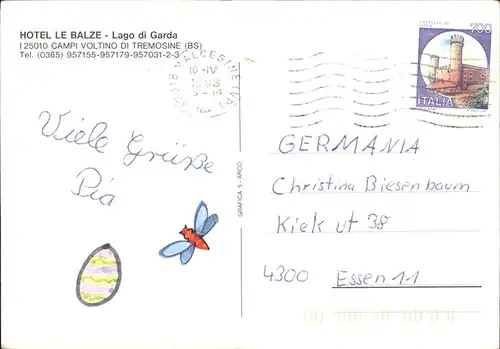 HOTEL LE BALZE - Lago di Garda
I 25010 CAMPI VOLTINO DI TREMOSINE (BS)
Tel. (0365) 957155-957179-957031-2-3
MALCESINE (VR)
10-IV
CASTELLO DI
700
ITALIA
Viele Grüße
Pia
GRAFICA 5 - ARCO
GERMANIA
Christina Biesenbaum
Kiek ut 38
4300 Essen 11